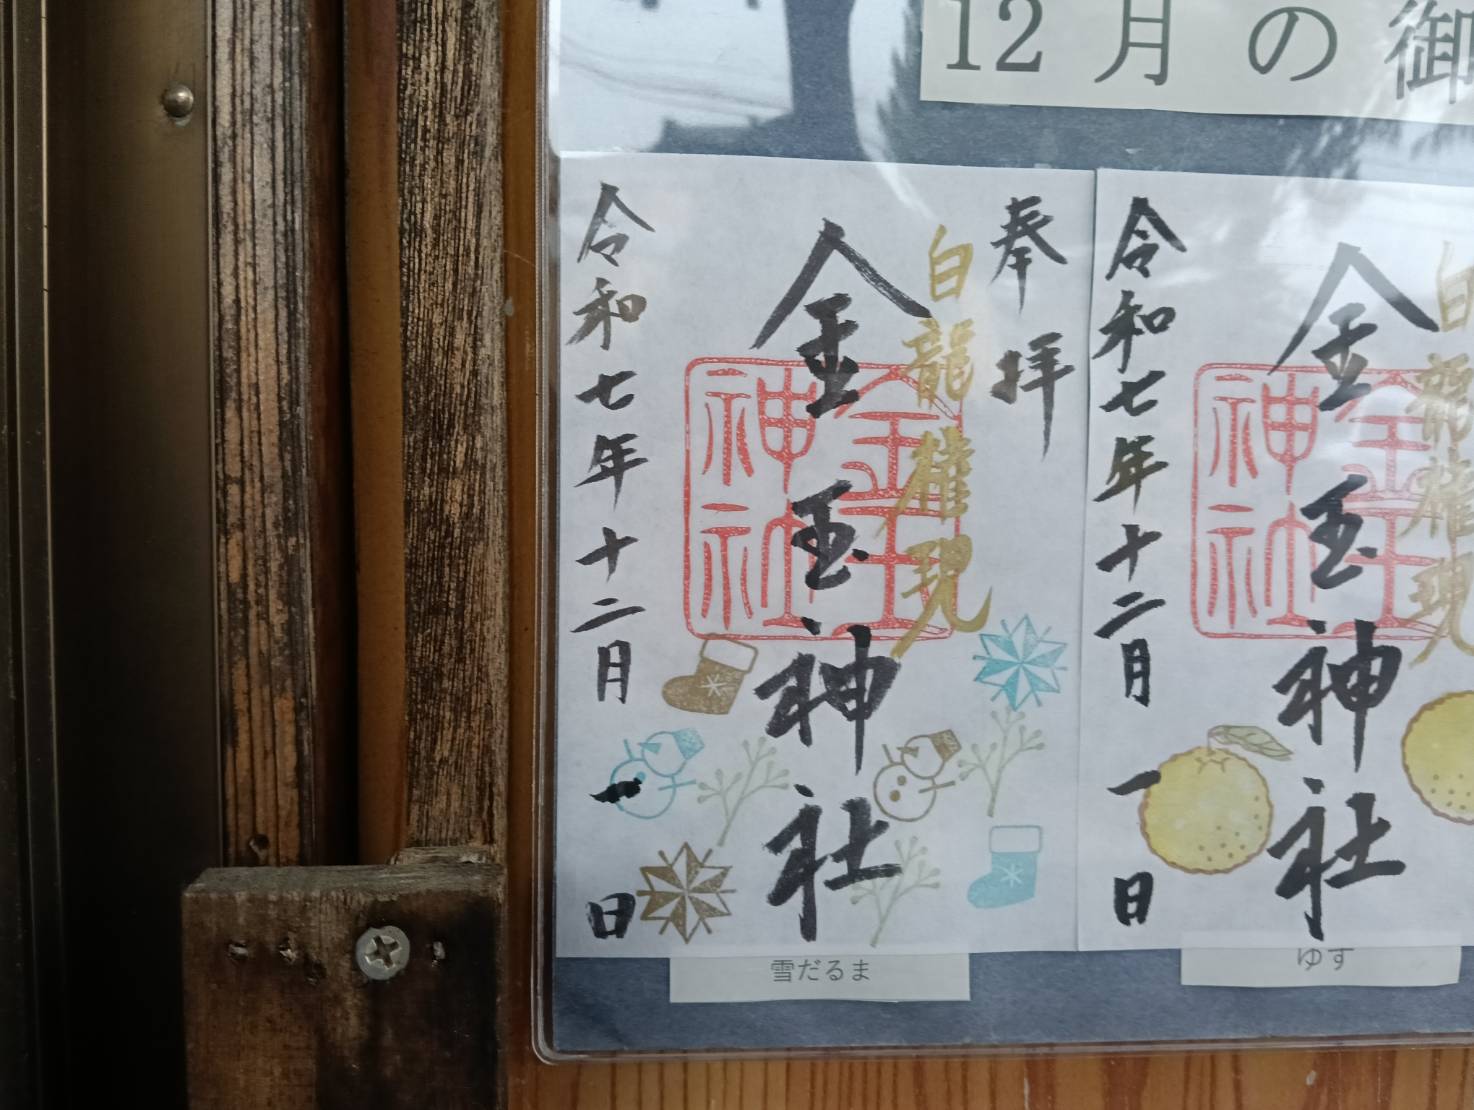 12月の御
奉拝
白龍権現
金玉神社
金玉神社
令和七年十二月一日
雪だるま
白龍権現
金玉神社
金玉神社
令和七年十二月一日
ゆず